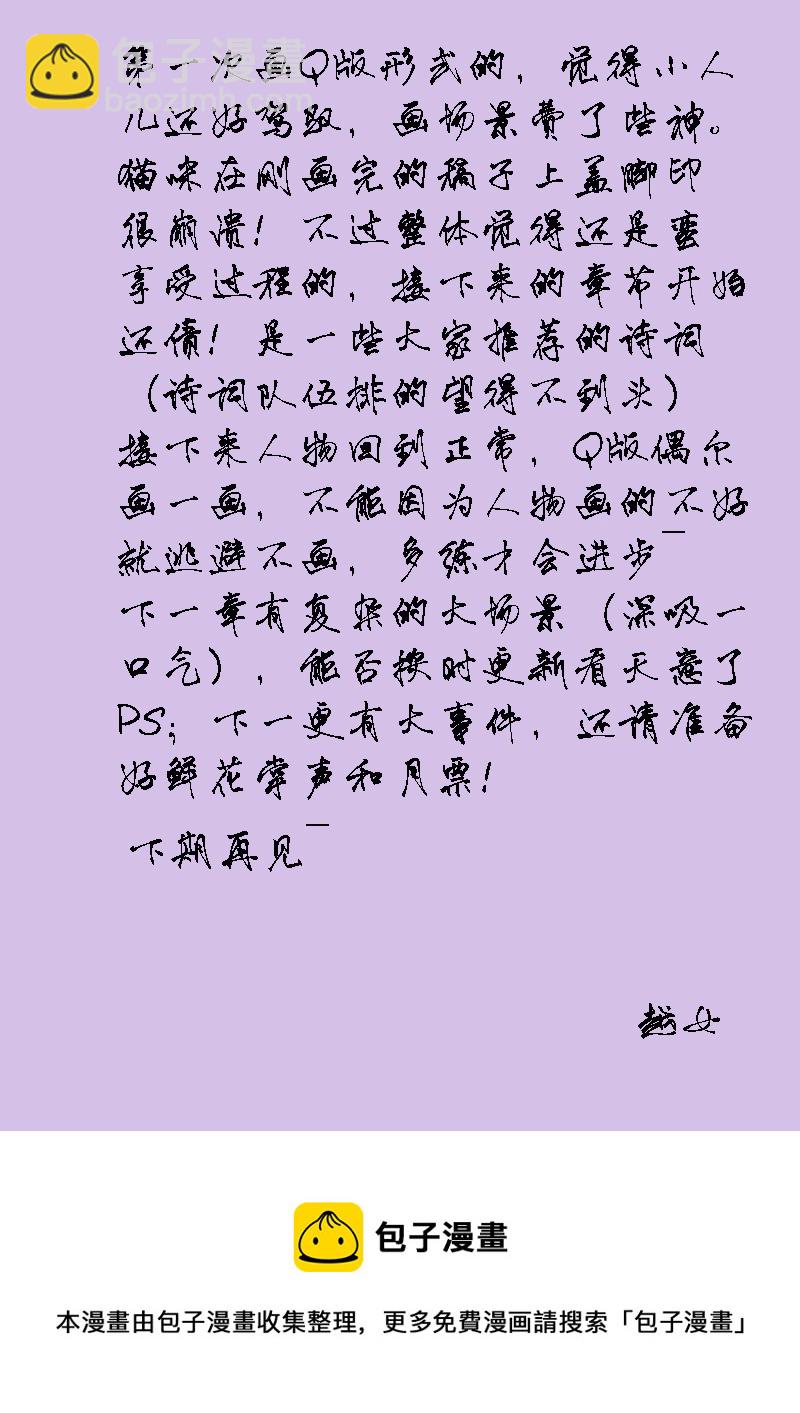 包子漫畫
baozimh.com
第一次画Q版形式的，觉得小人
儿还好驾驭，画场景费了些神。
猫咪在刚画完的稿子上盖脚印
很崩溃！不过整体觉得还是蛮
享受过程的，接下来的章节开始
还债！是一些大家推荐的诗词
（诗词队伍排的望得不到头）
接下来人物回到正常，Q版偶尔
画一画，不能因为人物画的不好
就逃避不画，多练才会进步¯
下一章有复杂的大场景（深吸一
口气），能否按时更新看天意了
PS；下一更有大事件，还请准备
好鲜花掌声和月票！
下期再见¯
越女
包子漫畫
本漫畫由包子漫畫收集整理，更多免費漫画請搜索「包子漫畫」